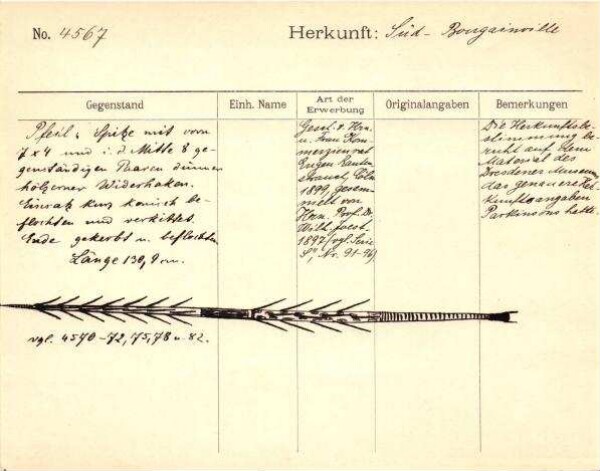 No. 4567
Herkunft: Süd-Bougainville
Gegenstand
Einh. Name
Art der Erwerbung
Originalangaben
Bemerkungen
Pfeil, Spitze mit vorn
7 x 4 und i. d. Mitte 8 ge-
genständigen Paaren dünner
hölzerner Widerhaken.
Einsatz kurz konisch be-
flochten und verkittet.
Ende gekerbt u. beflochten
Länge 139,9 cm.
Gesch. v. Hrn.
u. Frau Kom-
merzienrat
Eugen Rauten-
strauch, Cöln
1899, gesam-
melt von
Hrn. Prof. Dr.
Wilh. Joest
1897 (vgl. Serie
Nr. 91-96)
Die Herkunftsbe-
stimmung be-
ruht auf dem
Material des
Dresdener Museums,
das genauere Her-
kunftsangaben
Parkinsons hatte.
vgl. 4570-72, 75, 78 u. 82.